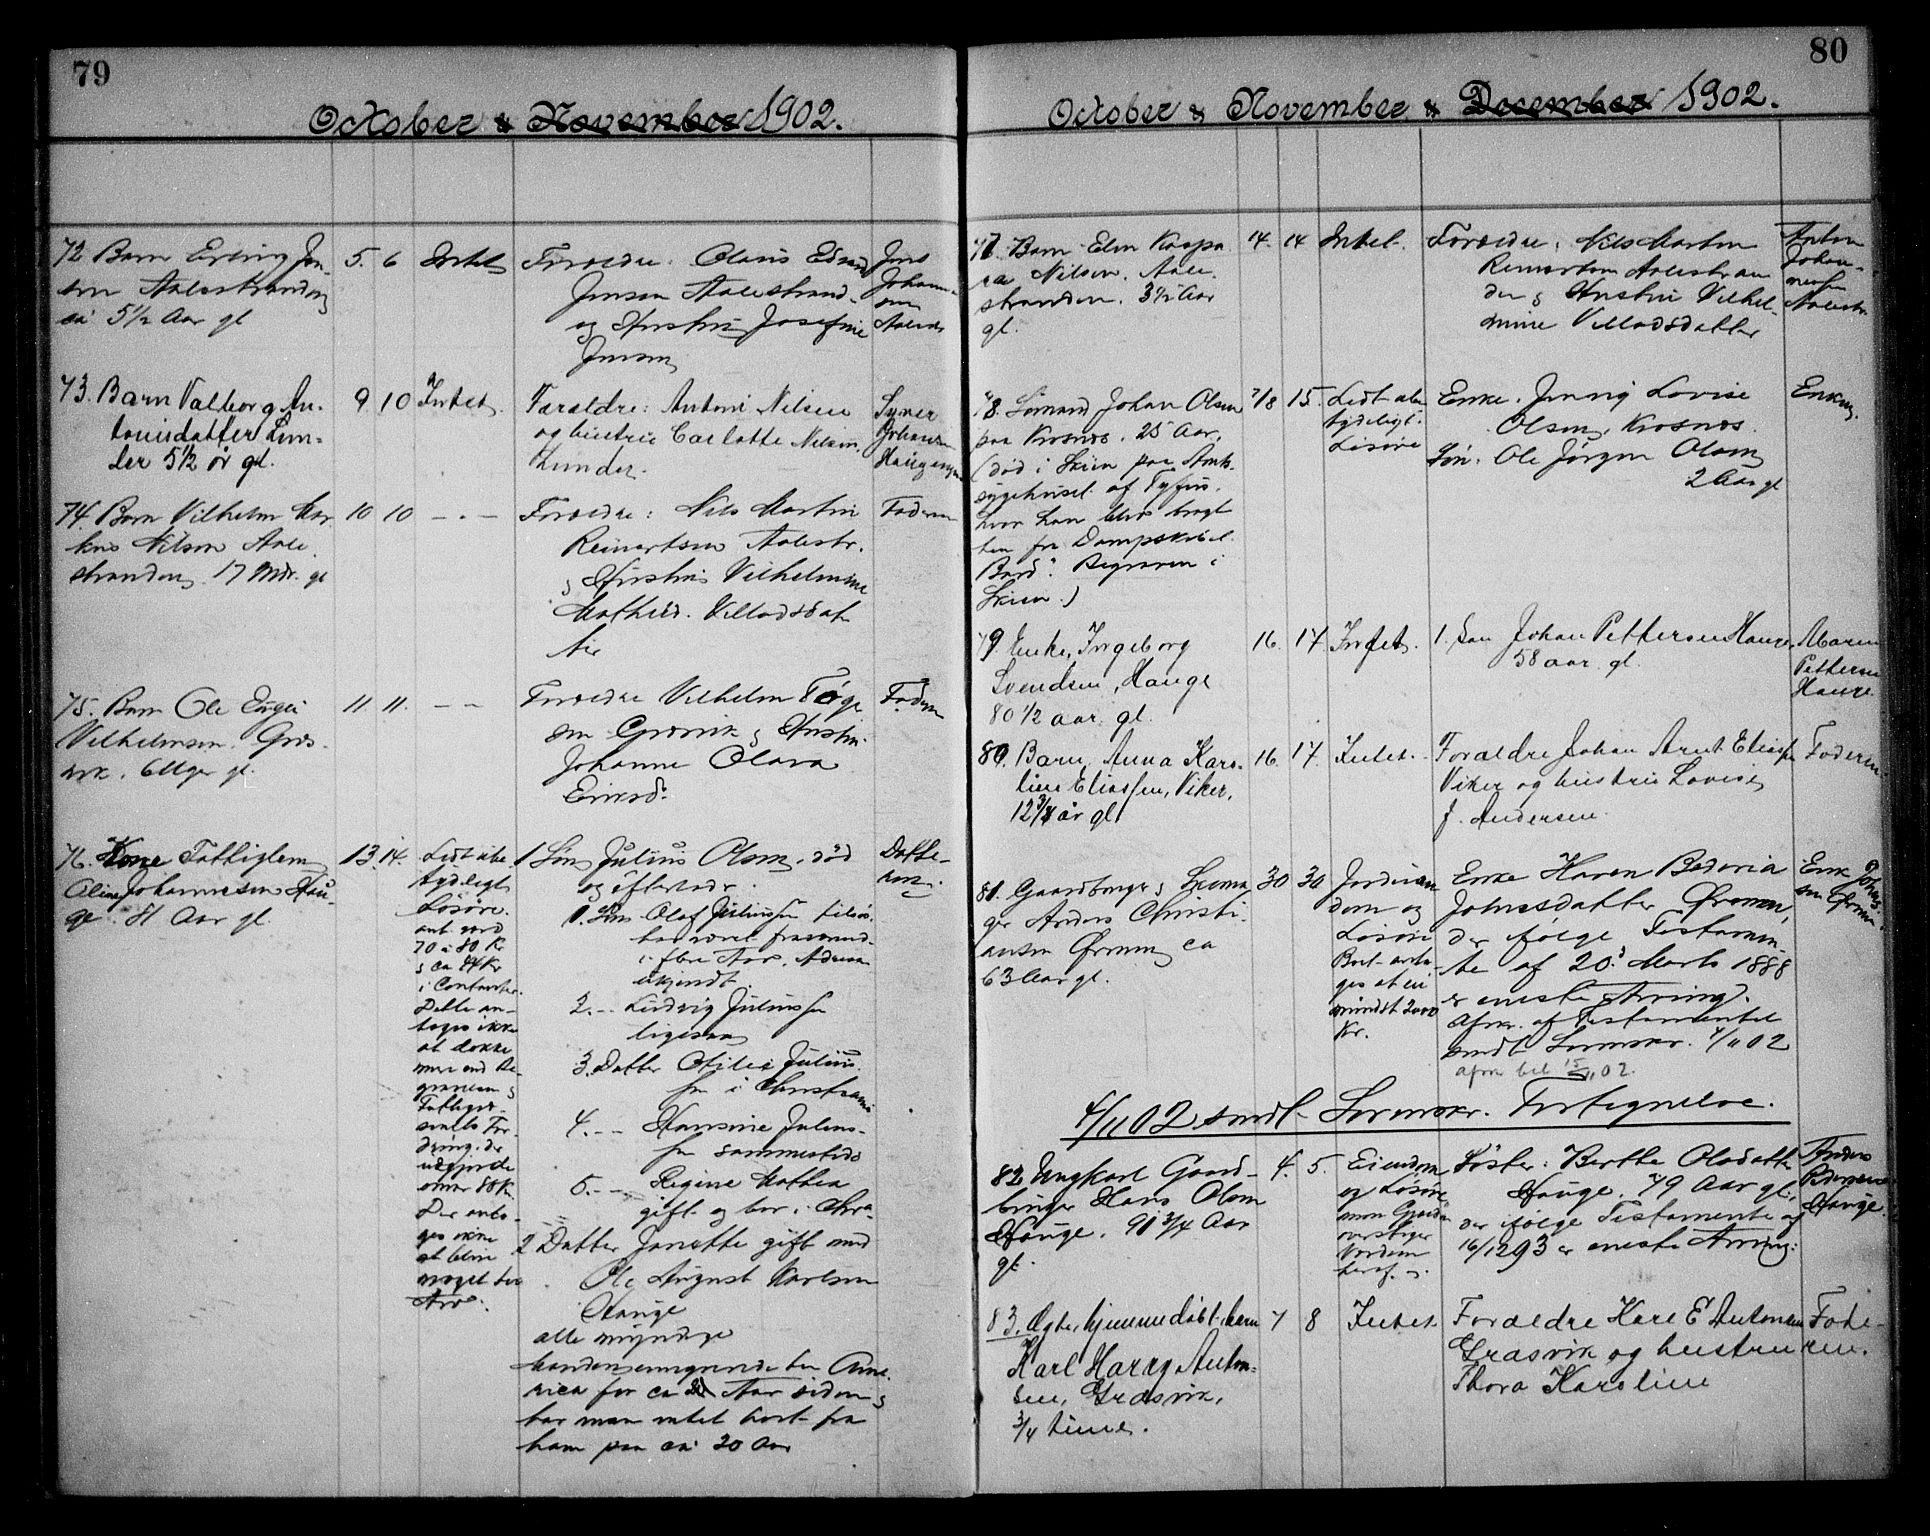 79
October & November 1902.
72 Barn Erling Jen-
sen Aalestranden
5½ Aar gl
5. 6
Intet
Forældre: Olaus Edvard
Jensen Aalestrand.
og Hustru Josefine
Jensen
Jens
Johann-
sen
73. Barn Valborg An-
tonisdatter Lun-
der 5½ år gl.
9 10
Intet.
Forældre: Antoni Nilsen
og hustru Carlotte Nilsen
Lunder.
Johansen
74. Barn Vilhelm Mar
kus Nilsen Aale
stranden, 17 Mdr. gl
10 10 — . —
Forældre: Nils Martin
Reinertsen Aalestr.
& Hustru Vilhelmine
Mathild. Villadsdat
ter
Faderen
75. Barn Ole
Vilhelmsen. Græs-
vik. 6 Uger gl.
11. 11. — —
Forældre Vilhelm Tørge
sen Græsvik & Hustru
Johanne Olava
Eriksd.
Faderen
76. Kone Fattiglem
Aline Johannesen Hau-
ge 81 Aar gl.
13. 14.
Lidt ube
tydeligt
Løsøre.
ant. værd
70 a 80 Kr
& ca 84 Kr
i Contanter.
Dette an-
tages ikke
at dække
mere end Be-
gravelsen &
Fattigvæ-
senets For-
dring. der
udgjorde
omtr 80 Kr.
Der anta-
ges ikke
at blive
noget til
Arv.
1 Søn Julius Olsen. død
og efterladr.
1. Søn Olaf Juliussen tilsøs.
har været fraværend-
i flere Aar. Adresse
ukjendt
2. — Ludvig Juliussen
ligesaa
3. Datter Otilie Julius
sen i Christiania
4. — — Hansine Julius-
sen sammesteds
5. — — Regine Mathea
gift og bor i Chra-
2 Datter Janette gift med
Ole August Karlsen
Hauge
alle myndige
Manden emigrerede til Ame
rica for ca Aar siden &
har man intet hørt fra
ham paa ca 20 Aar
Datte-
ren.
80
October & November & December 1902.
77. Barn Elen Kaspa
ra Nilsen. Aale
stranden. 3½ Aar
gl.
14. 14
Intet.
Forældre: Nils Martin
Reinertsen Aalestran
den & Hustru Vilhel-
mine Villadsdatter
Anton
Johan-
nesen
Aalestr.
78. Sømand Johan Olsen
paa Krosnes. 25 Aar.
(død i Skien paa Amts-
sygehuset af Tyfus.
hvor han blev bragt
hen fra Dampskibet
"Bard". Begraven i
Skien.)
7/8 15.
Lidt ube
tydeligt
Løsøre
Enke. Jenny Lovise
Olsen, Krosnes.
Søn. Ole Jørgen Olsen
2 Aar gl
Enken.
79 Enke, Ingeborg
Svendsen, Hauge
80 1/2 aar. gl.
16. 17.
Intet.
1. Søn Johan Pettersen Hauge,
58 aar. gl.
Maren
Pettersen
Hauge.
80. Barn, Anna Karo-
line Eliassen, Viker,
12 3/4 år gl.
16. 17.
Intet.
Forældre Johan Arnt Eliassen
Viker og hustru Lovise
f. Andersen.
Faderen.
81. Gaardbruger & Lodsma
ger Anders Christi
ansen Ørmen, ca
63 Aar gl.
30 30
Jordeien
dom og
Løsøre
Boet anta-
ges at eie
mindst 2000
Kr.
Enke Maren Bedovia
Johnsdatter Ørmen,
der ifølge Testamen-
te af 20. Marts 1888
er eneste Arving.
Afskr. af Testamentet
sendt Sorenskr. 4/11 02
afskr. bet 15/11 02.
Enke Johns-
sen Ørmen
4/11 02 sendt Sorenskr. Fortegnelse.
82 Ungkarl Gaard-
bruger Hans Olsen
Hauge. 91 3/4 Aar
gl.
4. 5.
Eiendom
og Løsøre
men Gjælden
overstiger
Værdien
heraf.
Søster: Berthe Olsdatter
Hauge. 79 Aar gl,
der ifølge Testamente af
16/12 93 er eneste Arving.
Anders
Pedersen
Hauge.
83. Ægte, hjemmedøbt barn
Karl Harry Anton-
sen, Græsvik,
3/4 time.
7 8
Intet.
Forældre Karl E Antonsen
Græsvik og hustru
Thora Karoline
Fade-
ren.